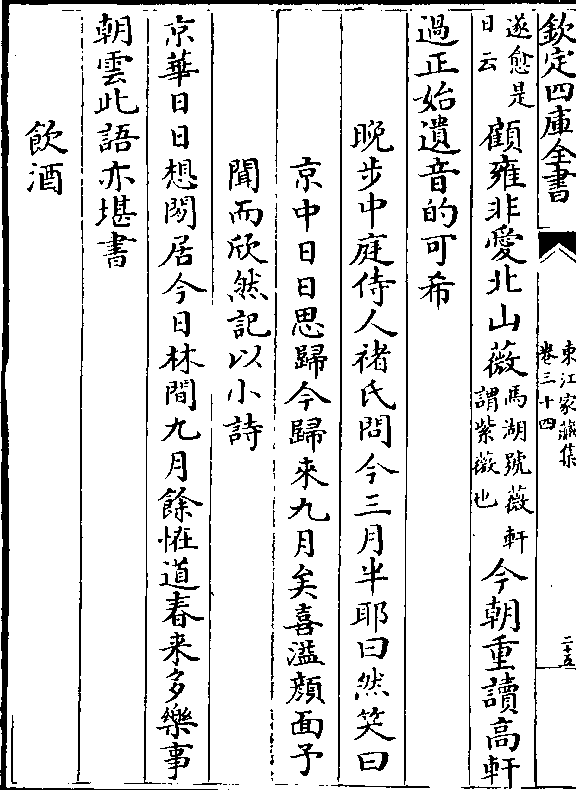 欽定四庫全書
東江家藏集
卷三十四
二十五
遂愈是
日云
顧雍非愛北山薇
馬湖號薇軒
謂紫薇也
今朝重讀高軒
過正始遺音的可希
晚步中庭侍人褚氏問今三月半耶曰然笑曰
京中日日思歸今歸來九月矣喜溢顔面予
聞而欣然記以小詩
京華日日想閒居今日林間九月餘恠道春来多樂事
朝雲此語亦堪書
飲酒